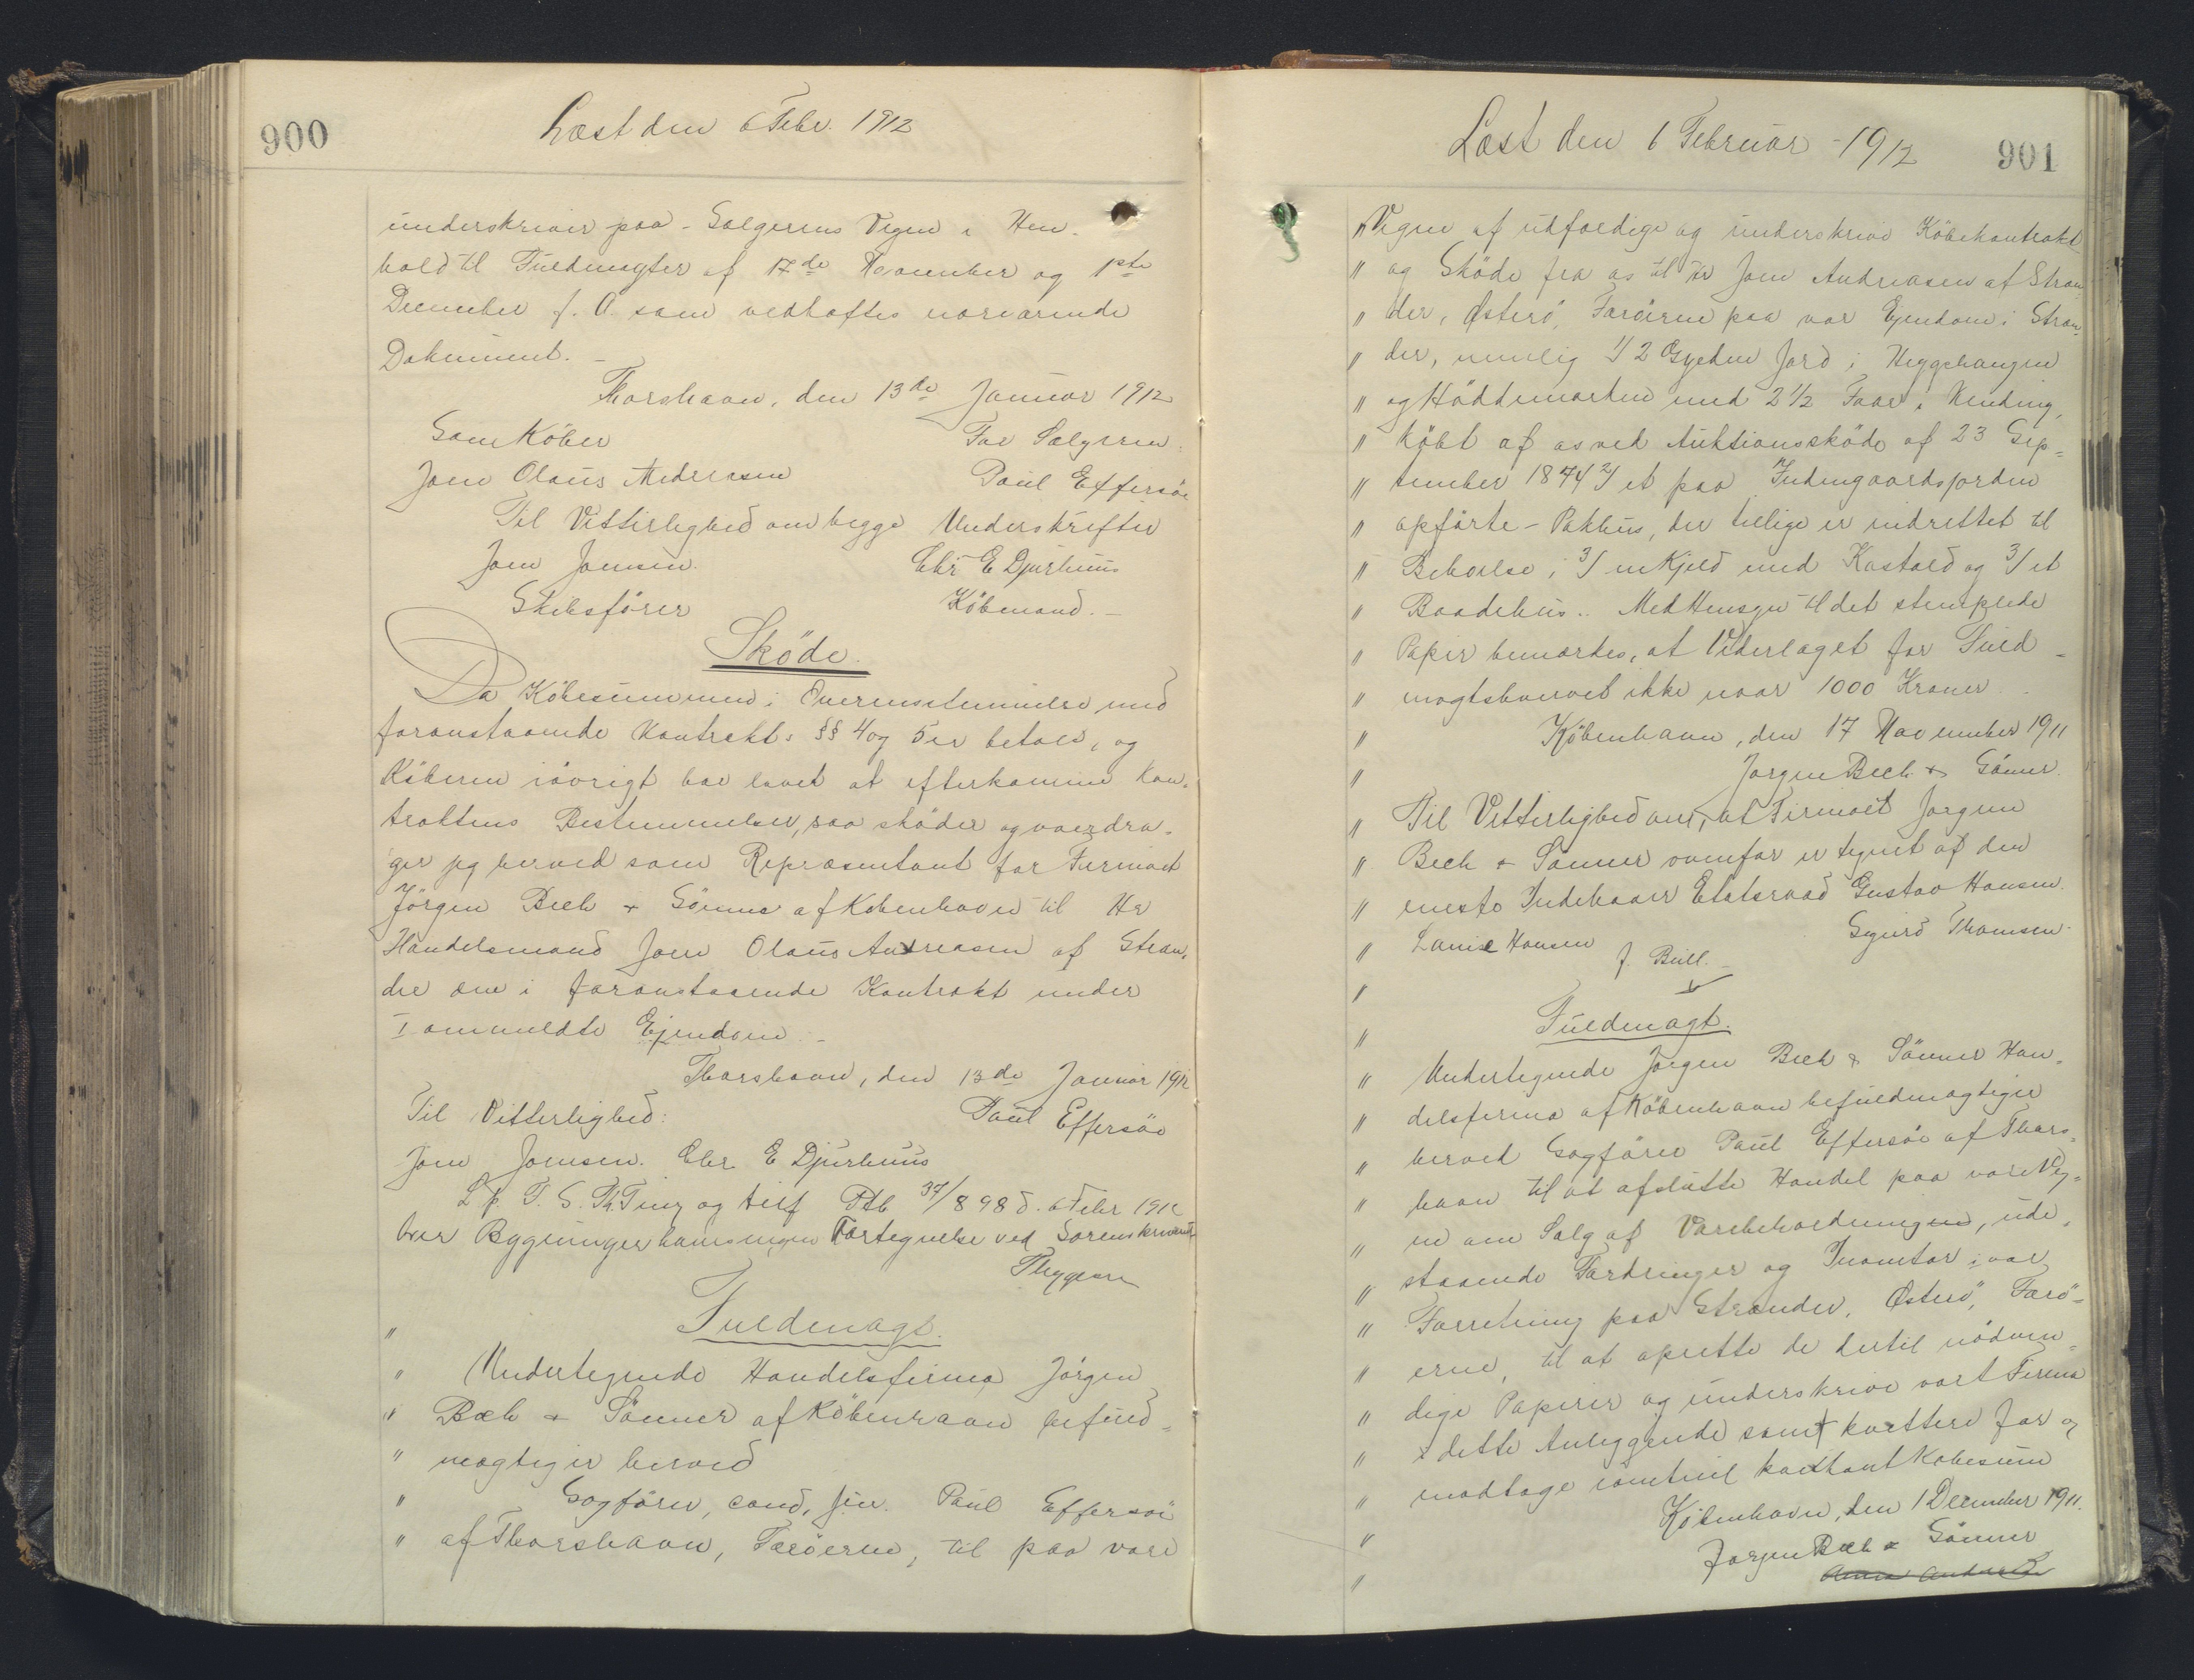 900
Læst den 6 Febr. 1912
underskriver paa Sælgerens Vegne i Hen-
hold til Fuldmagter af 17de November og 1ste
December f. A. som vedhæftes nærværende
Dokument.
Thorshavn, den 13de Januar 1912
Som Køber
For Sælgeren
Joen Olaus Andreasen
Paul Effersöe
Til Vitterlighed om begge Underskrifter
Joen Joensen.
Chr E Djurhuus
Skibsförer
Köbmand.
Sköde.
Da Köbesummen i Overensstemmelse med
foranstaaende Kontrakts §§ 4 og 5 er betalt, og
Köberen iövrigt har lovet at efterkomme Kon-
traktens Bestemmelser, saa sköder og overdra-
ger jeg herved som Repræsentant for Firmaet
Jörgen Bech & Sönner af Köbenhavn til Hr
Handelsmand Joen Olaus Andreasen af Stran-
der den i foranstaaende Kontrakt under
I ommeldte Ejendom.
Thorshavn, den 13de Januar 1912
Til Vitterlighed:
Paul Effersöe
Joen Joensen. Chr E Djurhuus
L p. T. S. Th. Ting og tilf Ptb 37/898 d. 6 Febr 1912
over Bygninger haves ingen Fortegnelse ved Sorenskriveri
Fuldmagt.
" Undertegnede Handelsfirma Jörgen
" Bech & Sönner af Köbenhavn befuld-
" mægtiger herved
" Sagförer, cand. jur. Paul Effersöe
" af Thorshavn, Færöerne, til paa vore
Læst den 6 Februar 1912
901
" Vegne at udfærdige og underskrive Köbekontrakt
" og Sköde fra os til Hr Joen Andreasen af Stran-
" der, Österö, Færöerne paa vor Ejendom i Stran-
" der, nemlig 1) 2 Gylden Jord i
" og med 2 1/2 Faar i
" köbt af os ved Auktionssköde af 23 Sep-
" tember 1874 2) et paa jorden
" opförte Pakhus, der tillige er indrettet til
" Beboelse i 3/ en Kjeld med Kastald og 3/ et
" Baadehus. Med Hensyn til det stemplede
" Papir bemærkes, at Vederlaget for Fuld-
" magtshvervet ikke naar 1000 Kroner.
" Köbenhavn, den 17 November 1911
" Jörgen Bech & Sönner.
" Til Vitterlighed om, at Firmaet Jörgen
" Bech & Sönner ovenfor er tegnet af den
" eneste Indehaver Etatsraad Gustav Hansen.
" Louise Hansen
Sigurd Thomsen.
" J. Bull.
" Fuldmagt.
" Undertegnede Jörgen Bech & Sönner Han-
" delsfirma af Köbenhavn befuldmægtiger
" herved Sagförer Paul Effersöe af Thors-
" havn til at afslutte Handel paa vore Veg-
" ne om Salg af Varebeholdningen, ude-
" staaende Fordringer og Inventar i vor
" Forretning paa Strander, Österö, Færö-
" erne, til at oprette de hertil nödven-
" dige Papirer og underskrive vort Firma
" i dette Anliggende samt kvittere for og
" modtage eventuel kontant Købesum
" Köbenhavn, den 1 December 1911.
" Jörgen Bech & Sönner
"